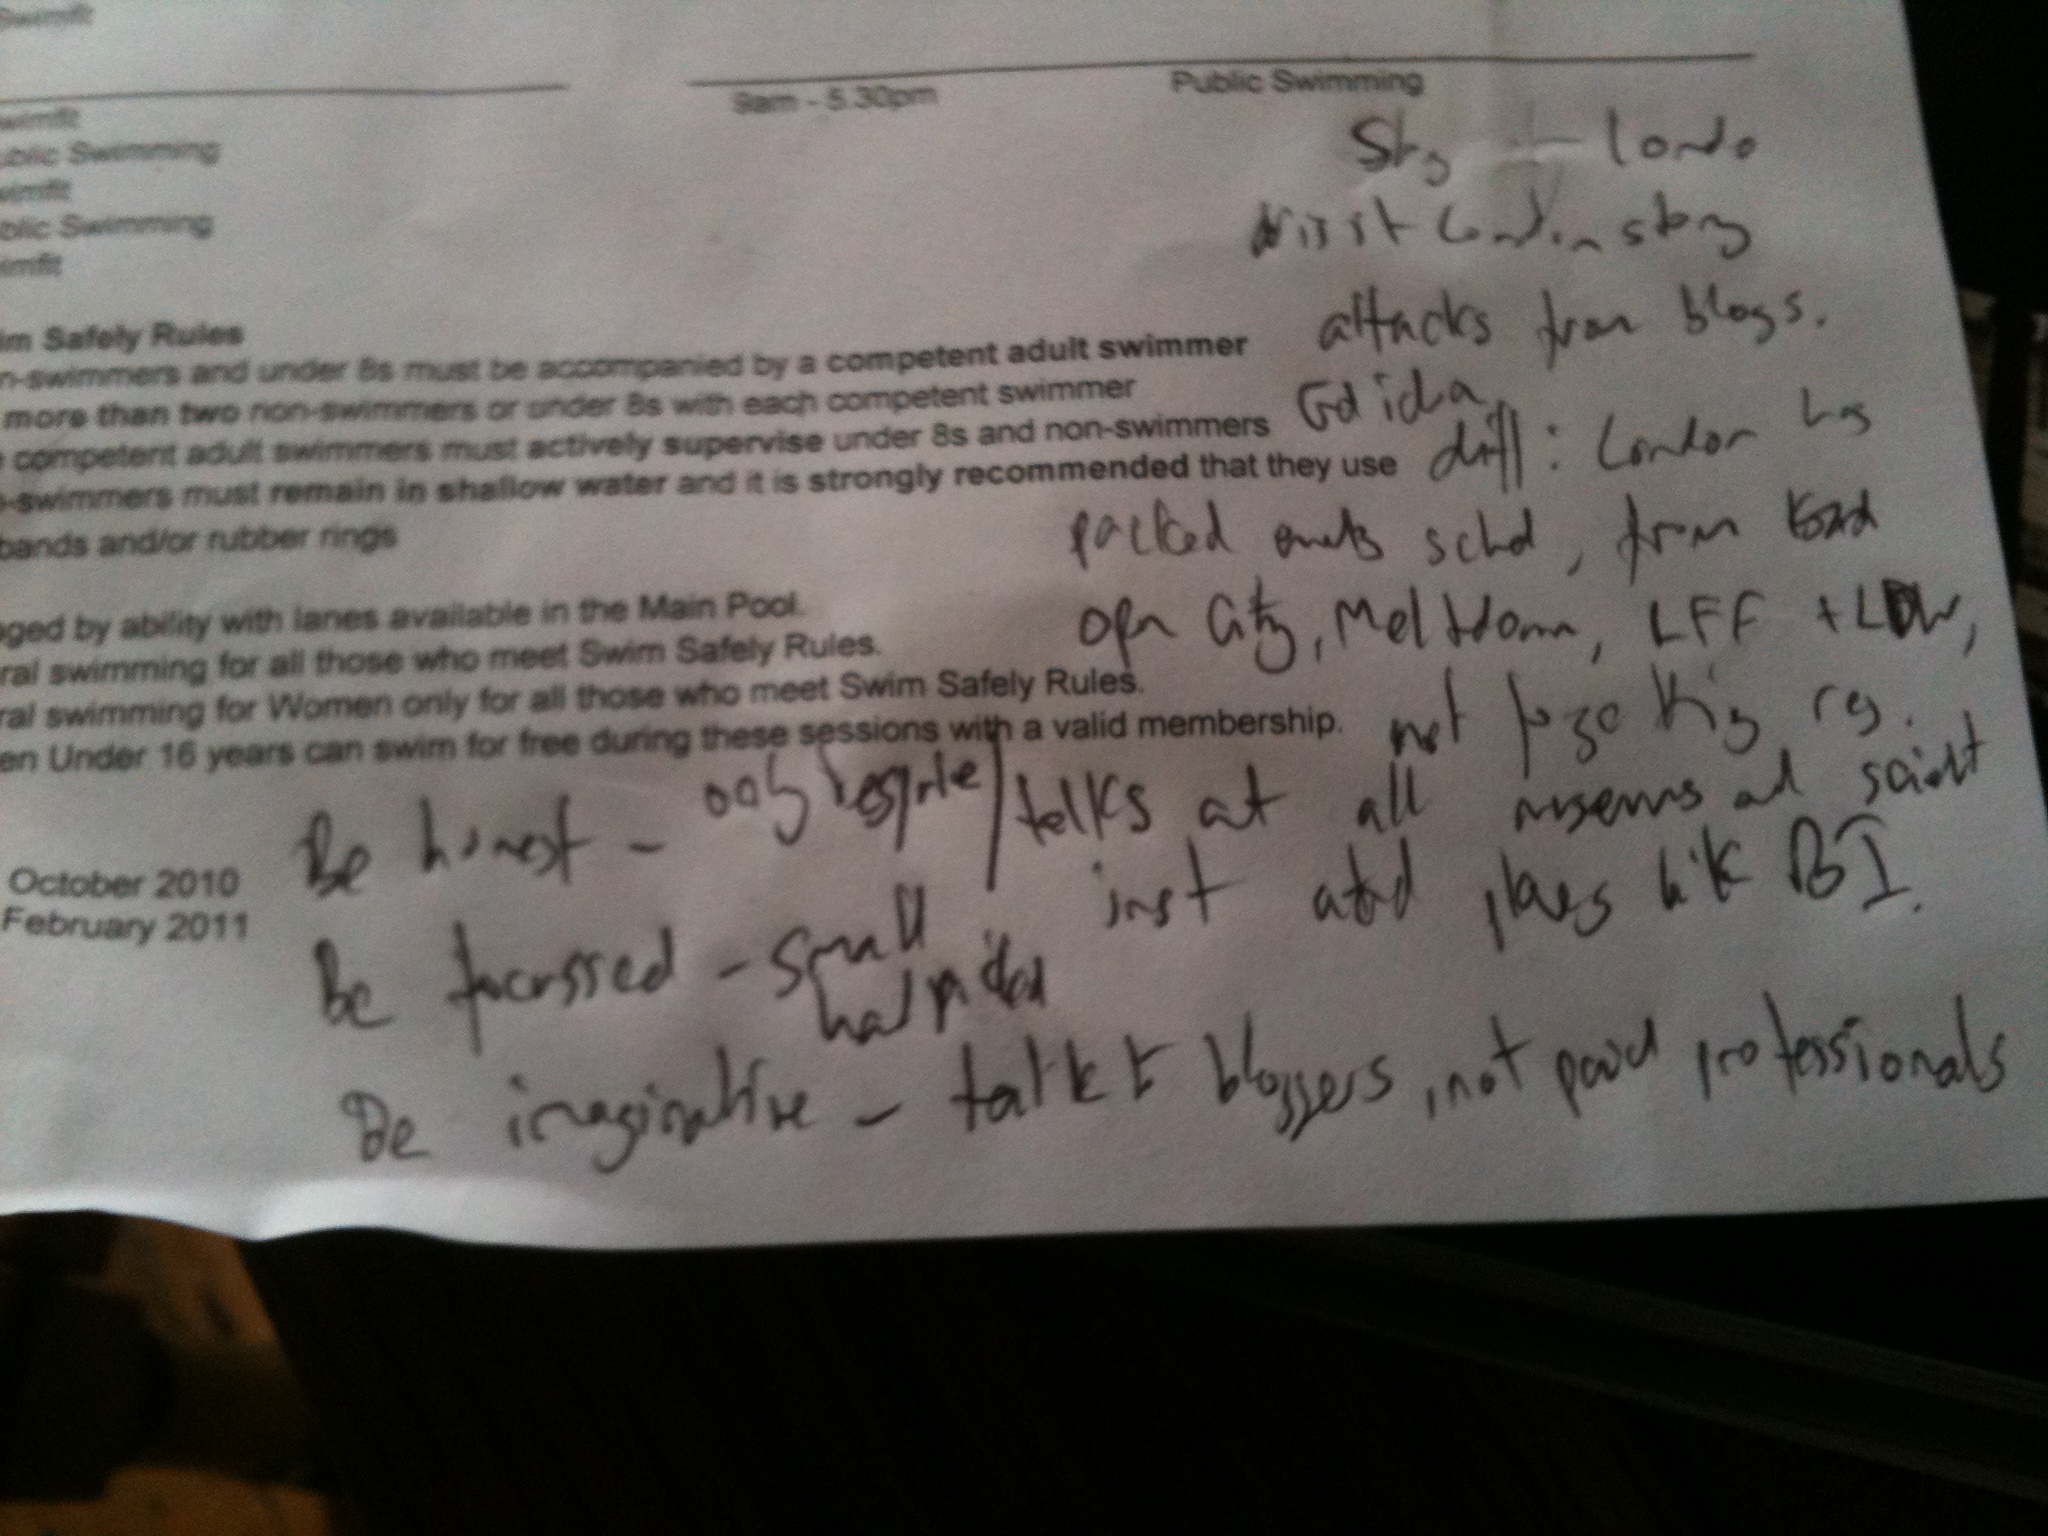 Swimfit
9am - 5.30pm Public Swimming
wimfit
ublic Swimming
wimfit
blic Swimming
imfit
londo
Visit London story
attacks from blogs.
im Safely Rules
n-swimmers and under 8s must be accompanied by a competent adult swimmer
more than two non-swimmers or under 8s with each competent swimmer
Gd idea
competent adult swimmers must actively supervise under 8s and non-swimmers
diff: London
-swimmers must remain in shallow water and it is strongly recommended that they use
bands and/or rubber rings
packed sched, from
Open City, Meltdown, LFF + LDW,
ged by ability with lanes available in the Main Pool.
ral swimming for all those who meet Swim Safely Rules.
ral swimming for Women only for all those who meet Swim Safely Rules.
en Under 16 years can swim for free during these sessions with a valid membership.
not
talks at all museums and
inst places like BI.
Be honest -
October 2010
February 2011
Be focussed - small
Be imaginative - talk t bloggers, not paid professionals